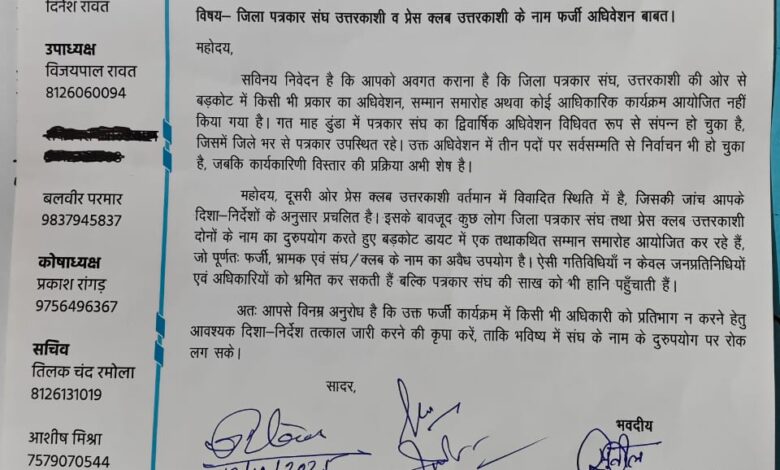 दिनेश रावत
उपाध्यक्ष
विजयपाल रावत
8126060094
बलवीर परमार
9837945837
कोषाध्यक्ष
प्रकाश रांगड़
9756496367
सचिव
तिलक चंद रमोला
8126131019
आशीष मिश्रा
7579070544
विषय– जिला पत्रकार संघ उत्तरकाशी व प्रेस क्लब उत्तरकाशी के नाम फर्जी अधिवेशन बाबत।
महोदय,
सविनय निवेदन है कि आपको अवगत कराना है कि जिला पत्रकार संघ, उत्तरकाशी की ओर से
बड़कोट में किसी भी प्रकार का अधिवेशन, सम्मान समारोह अथवा कोई आधिकारिक कार्यक्रम आयोजित नहीं
किया गया है। गत माह डुंडा में पत्रकार संघ का द्विवार्षिक अधिवेशन विधिवत रूप से संपन्न हो चुका है,
जिसमें जिले भर से पत्रकार उपस्थित रहे। उक्त अधिवेशन में तीन पदों पर सर्वसम्मति से निर्वाचन भी हो चुका
है, जबकि कार्यकारिणी विस्तार की प्रक्रिया अभी शेष है।
महोदय, दूसरी ओर प्रेस क्लब उत्तरकाशी वर्तमान में विवादित स्थिति में है, जिसकी जांच आपके
दिशा–निर्देशों के अनुसार प्रचलित है। इसके बावजूद कुछ लोग जिला पत्रकार संघ तथा प्रेस क्लब उत्तरकाशी
दोनों के नाम का दुरुपयोग करते हुए बड़कोट डायट में एक तथाकथित सम्मान समारोह आयोजित कर रहे हैं,
जो पूर्णतः फर्जी, भ्रामक एवं संघ/क्लब के नाम का अवैध उपयोग है। ऐसी गतिविधियाँ न केवल जनप्रतिनिधियों
एवं अधिकारियों को भ्रमित कर सकती हैं बल्कि पत्रकार संघ की साख को भी हानि पहुँचाती हैं।
अतः आपसे विनम्र अनुरोध है कि उक्त फर्जी कार्यक्रम में किसी भी अधिकारी को प्रतिभाग न करने हेतु
आवश्यक दिशा–निर्देश तत्काल जारी करने की कृपा करें, ताकि भविष्य में संघ के नाम के दुरुपयोग पर रोक
लग सके।
सादर,
भवदीय
सुनील